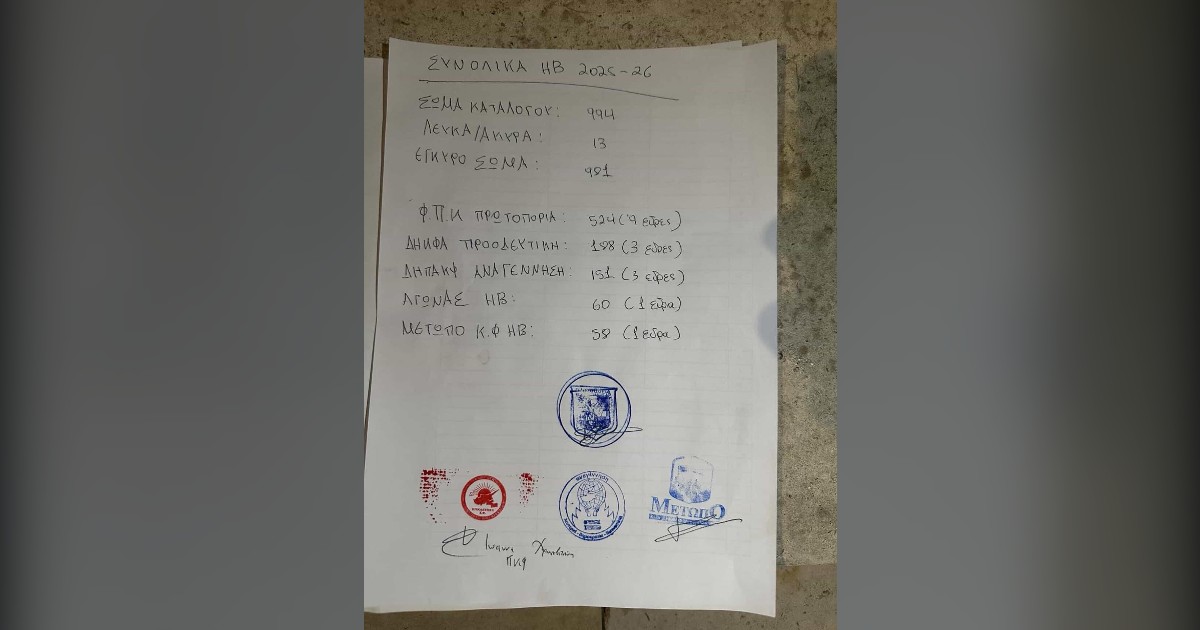 ΣΥΝΟΛΙΚΑ ΗΒ 2025-26
ΣΩΜΑ ΚΑΤΑΛΟΓΟΥ: 994
ΛΕΥΚΑ/ΑΚΥΡΑ: 13
ΕΓΚΥΡΟ ΣΩΜΑ: 981
Φ.Π.Κ ΠΡΩΤΟΠΟΡΙΑ: 524 (9 εδρες)
ΔΗΚΦΑ ΠΡΟΟΔΕΥΤΙΚΗ: 188 (3 εδρες)
ΔΗΠΑΚΦ ΑΝΑΓΕΝΝΗΣΗ: 151 (3 εδρες)
ΑΓΩΝΑΣ ΗΒ: 60 (1 εδρα)
ΜΕΤΩΠΟ Κ.Φ ΗΒ: 58 (1 εδρα)
αναγέννηση
ΜΕΤΩΠΟ